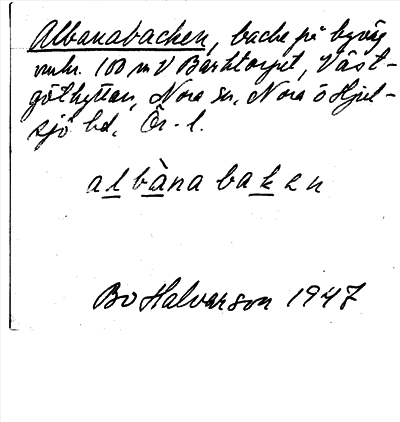 Albanabacken, backe på byväg
omkr. 100 m V Bärhtorpet, Väst-
göthyttan, Nora sn, Nora o Hjul-
sjö bd, Ör. l.
albàna baken
Bo Halvarson 1947